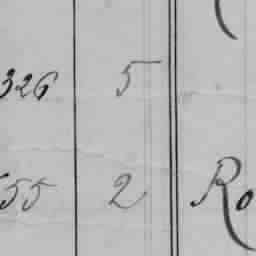 326 5
55 2 Ro